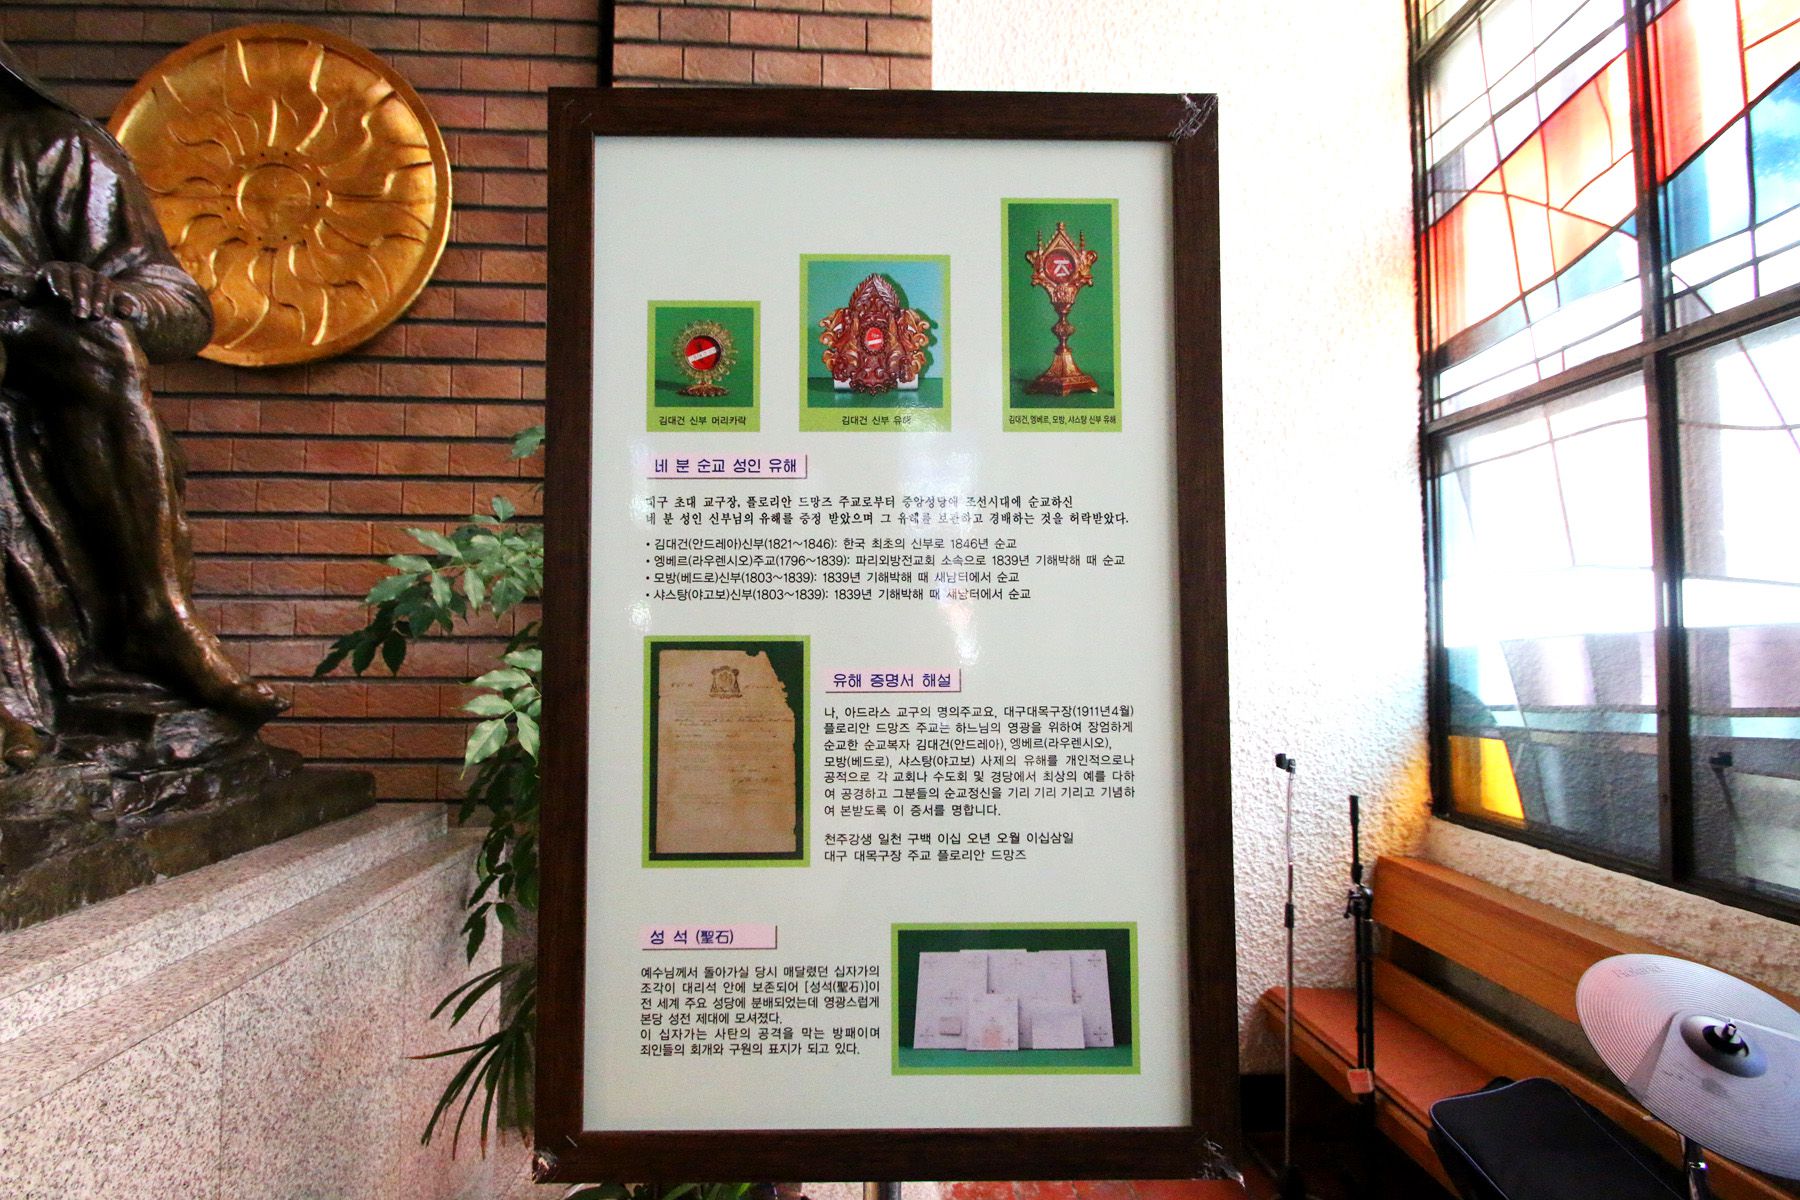 김대건 신부 머리카락
김대건 신부 유해
김대건, 엥베르, 모방, 샤스탕 신부 유해
네 분 순교 성인 유해
대구 초대 교구장, 플로리안 드망즈 주교로부터 중앙성당에 조선시대에 순교하신
네 분 성인 신부님의 유해를 증정 받았으며 그 유해를 보관하고 경배하는 것을 허락받았다.
• 김대건(안드레아)신부(1821~1846): 한국 최초의 신부로 1846년 순교
• 엥베르(라우렌시오)주교(1796~1839): 파리외방전교회 소속으로 1839년 기해박해 때 순교
• 모방(베드로)신부(1803~1839): 1839년 기해박해 때 새남터에서 순교
• 샤스탕(야고보)신부(1803~1839): 1839년 기해박해 때 새남터에서 순교
유해 증명서 해설
나, 아드라스 교구의 명의주교요, 대구대목구장(1911년4월)
플로리안 드망즈 주교는 하느님의 영광을 위하여 장엄하게
순교한 순교복자 김대건(안드레아), 엥베르(라우렌시오),
모방(베드로), 샤스탕(야고보) 사제의 유해를 개인적으로나
공적으로 각 교회나 수도회 및 경당에서 최상의 예를 다하
여 공경하고 그분들의 순교정신을 기리 기리 기리고 기념하
여 본받도록 이 증서를 명합니다.
천주강생 일천 구백 이십 오년 오월 이십삼일
대구 대목구장 주교 플로리안 드망즈
성 석 (聖石)
예수님께서 돌아가실 당시 매달렸던 십자가의
조각이 대리석 안에 보존되어 [성석(聖石)]이
전 세계 주요 성당에 분배되었는데 영광스럽게
본당 성전 제대에 모셔졌다.
이 십자가는 사탄의 공격을 막는 방패이며
죄인들의 회개와 구원의 표지가 되고 있다.
Roland